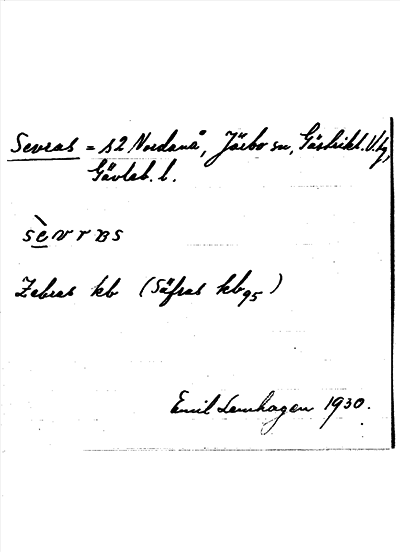 Sevras = s2 Nordanå, Järbo sn, Gästrikl. V. tg,
Gävleb. l.
sèvras
Zebras kb (Säfras kb95)
Emil Lenhagen 1930.